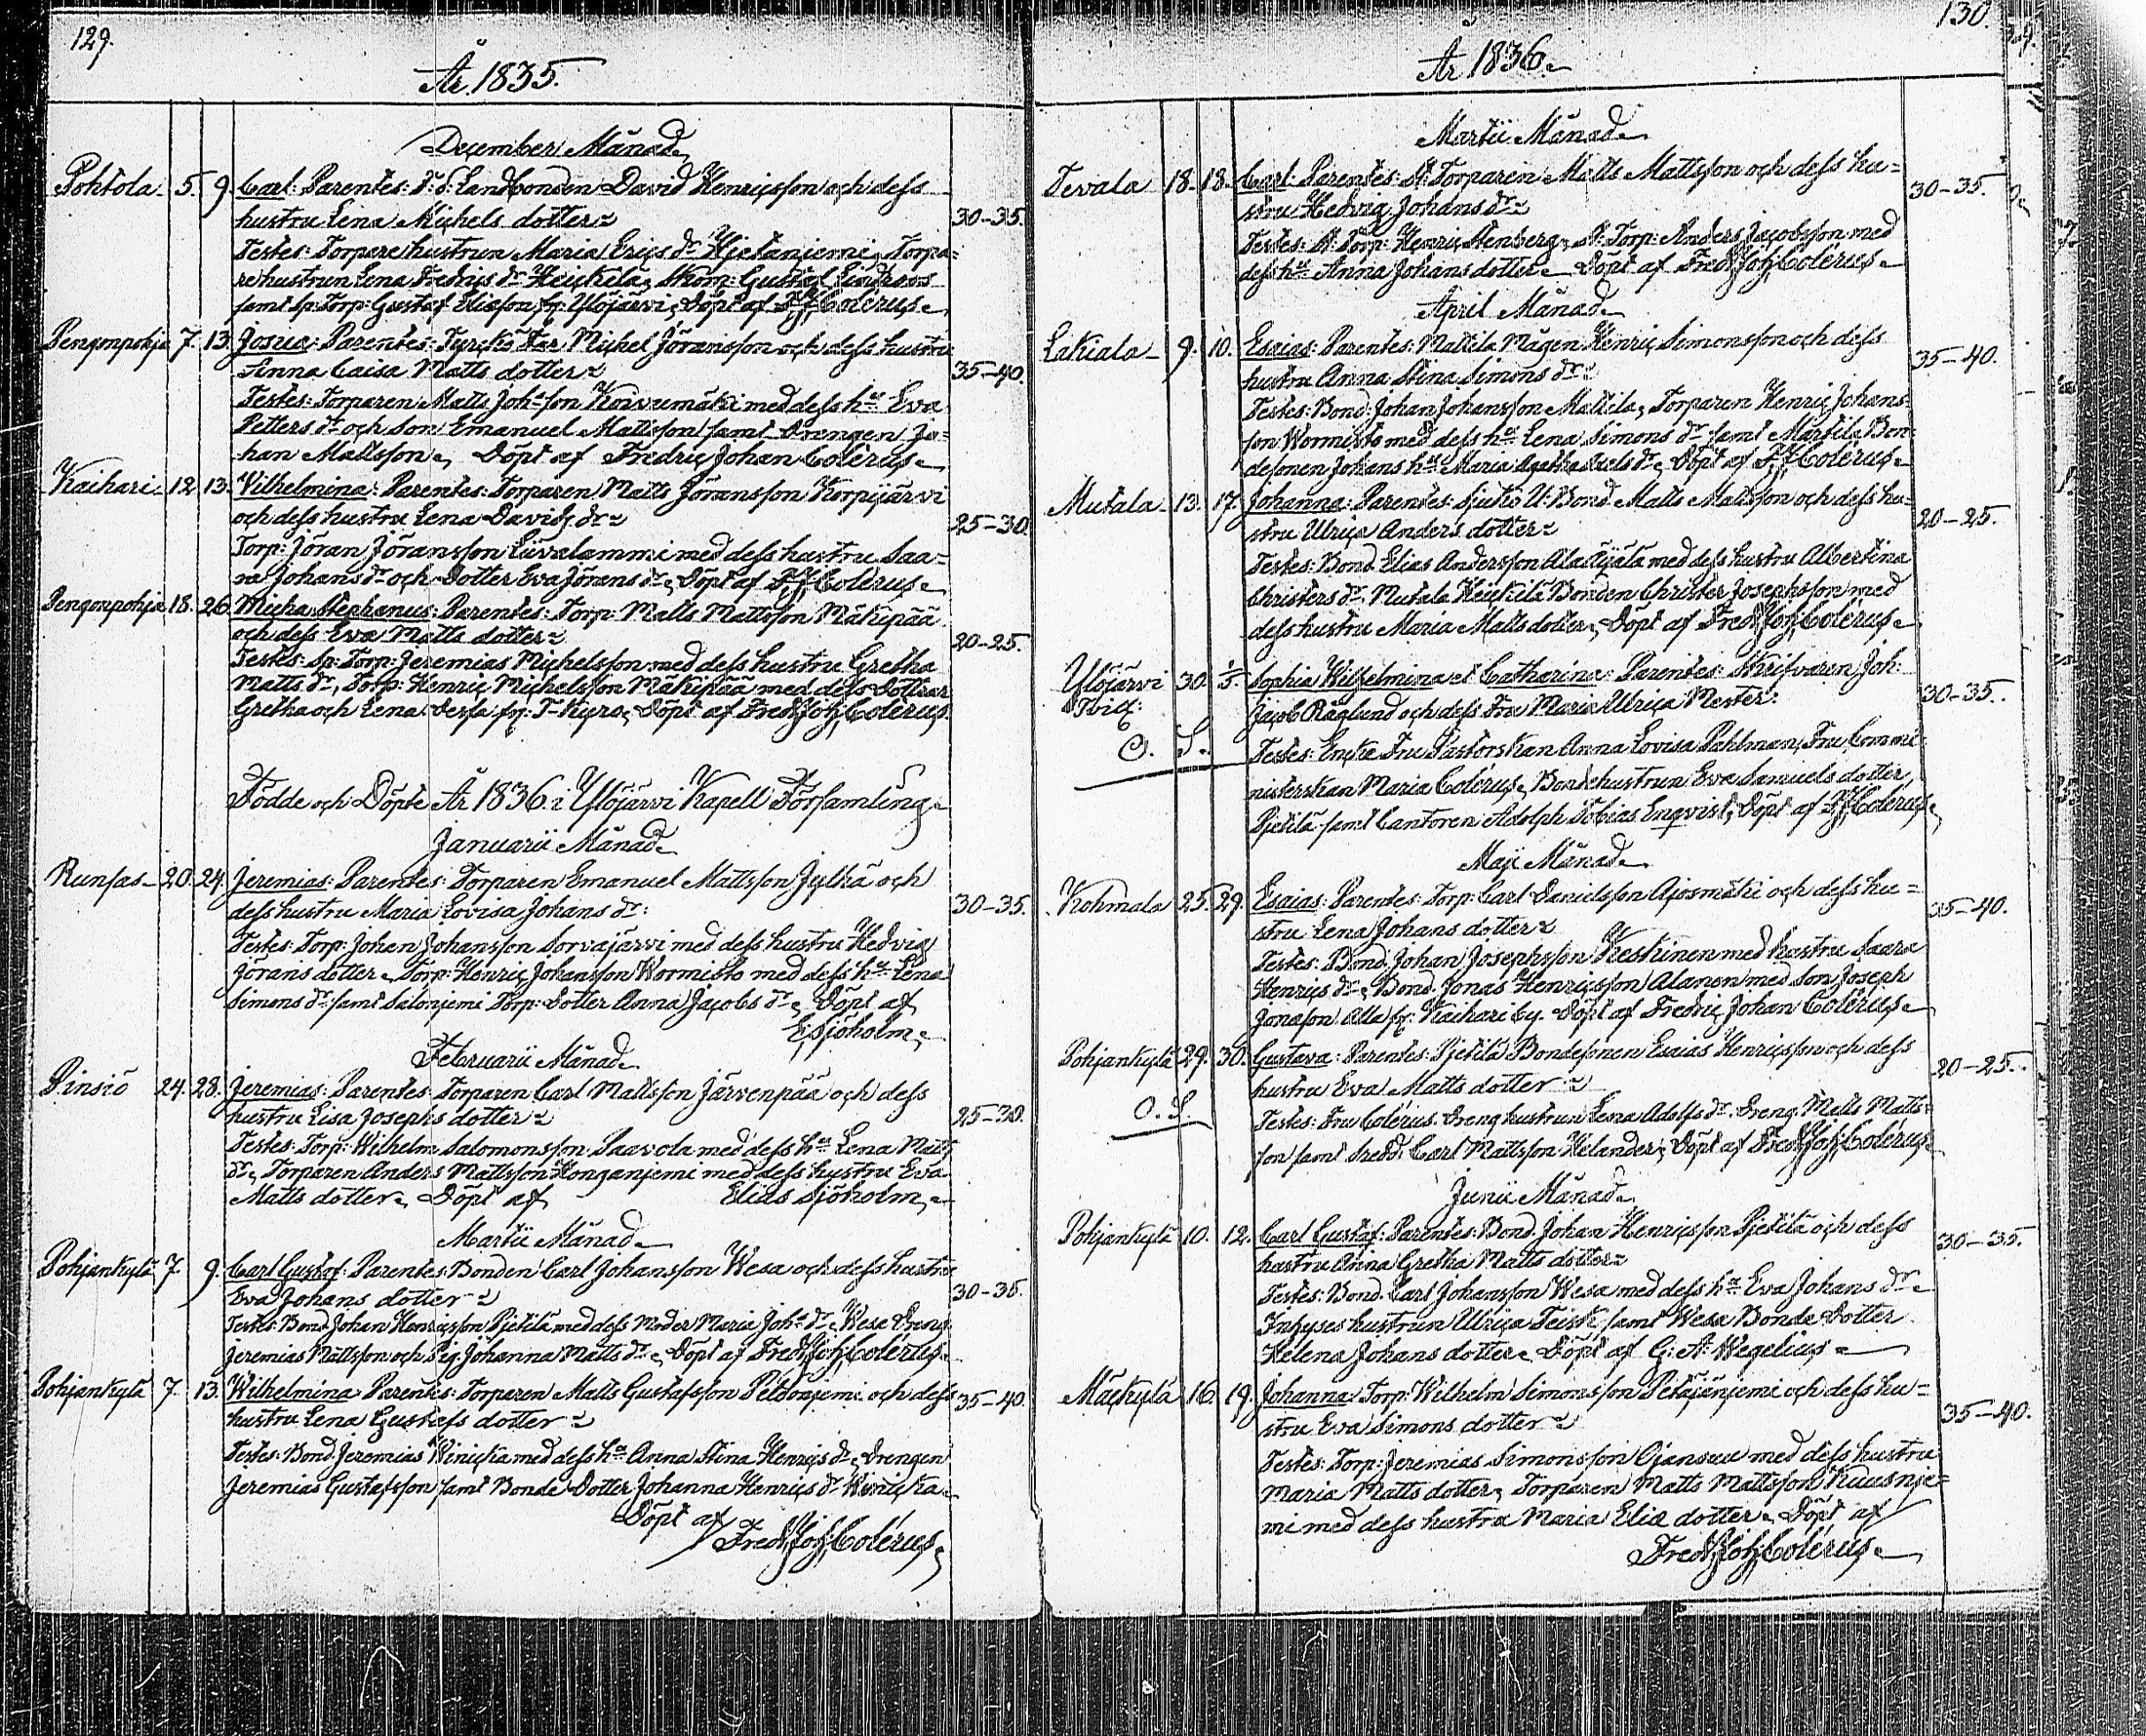 129.
År 1835.
December Månad
Pohtola 5. 9. Carl: Parentes: Landbonden David Henricsson och dess
hustru Lena Michels dotter 30-35.
Testes: Torpare hustrun Maria Erics dr Hietaniemi, Torpa=
re hustrun Lena Fredrics dr Heickilä, Skom: Gustaf Lindroos
samt Sp: Torp: Gustaf Eliasson fr: Ylöjärvi, Döpt af F. J. Colérus
Pengonpohja 7. 13. Josua: Parentes: Michel Jöransson och dess hustru
Anna Caisa Matts dotter 35-40.
Testes: Torparen Matts Johsson Koivumäki med dess hu Eva
Petters dr och Son Emanuel Mattsson samt Drengen Jo=
han Mattsson, Döpt af Fredric Johan Colérus
Kaihari 12. 13. Vilhelmina: Parentes: Torparen Matts Jöransson Korpijärvi
och dess hustru Lena Davids dr 25-30.
Torp: Jöran Jöransson Liivalammi med dess hustru Saa=
ra Johans dr och Dotter Eva Jörans dr, Döpt af F. J. Colérus
Pengonpohja 18. 26. Micha Stephanus: Parentes: Torp: Matts Mattsson Mäkipää
och dess Eva Matts dotter 20-25.
Testes: Sp: Torp: Jeremias Michelsson med dess hustru Gretha
Matts dr, Torp: Henric Michelsson Mäkipää med dess Döttrar
Gretha och Lena. Dessa fr: T-Kyro, Döpt af Fredr. Joh. Colérus
Födde och Döpte År 1836 i Ylöjärvi Kapell Församling
Januarii Månad
Runsas 20. 24. Jeremias: Parentes: Torparen Emanuel Mattsson Jylhä och
dess hustru Maria Lovisa Johans dr: 30-35.
Testes: Torp: Johan Johansson Sorvajärvi med dess hustru Hedvig
Jörans dotter, Torp: Henric Johansson Wormisto med dess hu Lena
Simons dr samt Salonjemi Torp: Dotter Anna Jacobs dr, Döpt af
E. Sjöholm
Februarii Månad
Pinsiö 24. 28. Jeremias: Parentes: Torparen Carl Mattsson Järvenpää och dess
hustru Lisa Josephs dotter 25-30.
Testes: Torp: Wilhelm Salomonsson Saavola med dess hu Lena Matts
dr, Torparen Anders Mattsson Honganjemi med dess hustru Eva
Matts dotter, Döpt af Elias Sjöholm
Martii Månad
Pohjankylä 7. 9. Carl Gustaf: Parentes: Bonden Carl Johansson Wesa och dess hustru
Eva Johans dotter 30-35.
Testes: Bond. Johan Henricsson Pietilä med dess Moder Maria Johs dr, Wesa Dreng
Jeremias Mattsson och Pig. Johanna Matts dr, Döpt af Fredr. Joh. Colérus
Pohjankylä 7. 13. Wilhelmina: Parentes: Torparen Matts Gustafsson Peldonjemi och dess
hustru Lena Gustafs dotter 35-40.
Testes: Bond. Jeremias Winicka med dess hu Anna Stina Henrics dr, Drengen
Jeremias Gustafsson samt Bonde Dotter Johanna Henrics dr Winicka
Döpt af
Fredr. Joh. Colérus
130.
År 1836.
Martii Månad
Tevala 18. 18. Carl: Parentes: St: Torparen Matts Mattsson och dess hu=
stru Hedvig Johans dr 30-35.
Testes: St: Torp: Henric Stenberg, St: Torp: Anders Jacobsson med
dess hu Anna Johans dotter, Döpt af Fredr. Joh. Colérus
April Månad
Lakiala 9. 10. Esaias: Parentes: Mattila Mågen Henric Simonsson och dess
hustru Anna Stina Simons dr 35-40.
Testes: Bond: Johan Johansson Mattila, Torparen Henric Johans=
son Wormisto med dess hu Lena Simons dr samt Martila Bon=
desonen Johans hu Maria Agatha dr, Döpt af F. J. Colérus
Mutala 13. 17. Johanna: Parentes: U: Bond. Matts Mattsson och dess hu=
stru Ulrica Anders dotter 20-25.
Testes: Bond. Elias Andersson Ala Äijälä med dess hustru Albertina
Christers dr, Mutala Heickilä Bonden Christer Josephsson med
dess hustru Maria Matts dotter, Döpt af Fredr. Joh. Colérus
Ylöjärvi 30. 1/5. Sophia Wilhelmina et Catharina: Parentes: Skrifvaren Joh:
Jacob Råglund och dess Fru Maria Ulrica Mester: 30-35.
O. S. Testes: Enke Fru Pastorskan Anna Lovisa Pahlman, Fru Commi=
nisterskan Maria Colérus, Bondehustrun Eva Samuels dotter
Pietilä samt Cantoren Adolph Tobias Enqvist, Döpt af F. J. Colérus
Maji Månad
Kohmala 25. 29. Esaias: Parentes: Torp: Carl Danielsson Ajosmäki och dess hu=
stru Lena Johans dotter 35-40.
Testes: Bond. Johan Josephsson Keskinen med hustru Saara
Henrics dr, Bond. Jonas Henricsson Alanen med Son Joseph
Jonasson alla fr: Kaihari by. Döpt af Fredric Johan Colérus
Pohjankylä 29. 30. Gustava: Parentes: Pietilä Bondesonen Esaias Henricsson och dess
hustru Eva Matts dotter 20-25.
O. S. Testes: Fru Colérus. Dreng hustrun Lena Adolfs dr. Dreng. Matts Matts=
son samt Carl Mattsson Helander, Döpt af Fredr. Joh. Colérus
Junii Månad
Pohjankylä 10. 12. Carl Gustaf: Parentes: Bond. Johan Henricsson Pietilä och dess
hustru Anna Gretha Matts dotter 30-35.
Testes: Bond. Carl Johansson Wesa med dess hu Eva Johans dr
Inhyses hustrun Ulrica Teisk samt Wesa Bonde Dotter
Helena Johans dotter, Döpt af G: A: Wegelius
Mäckylä 16. 19. Johanna: Torp: Wilhelm Simonsson Petäjänjemi och dess hu=
stru Eva Simons dotter 35-40.
Testes: Torp: Jeremias Simonsson Ojansuu med dess hustru
Maria Matts dotter, Torparen Matts Mattsson Kuusnje=
mi med dess hustru Maria Eliæ dotter, Döpt af
Fredr. Joh. Colérus